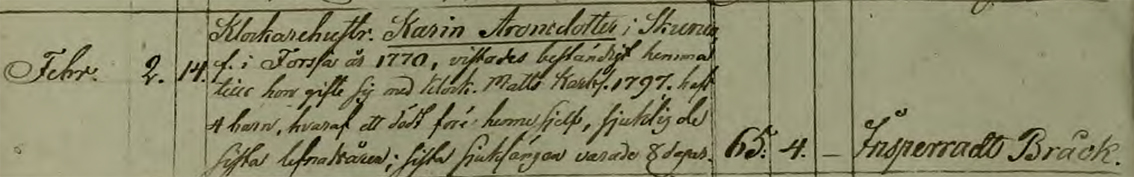 Klockarehustr. Karin Aronsdotter i Skurun
Febr. 2. 14. f. i Forssa år 1770, vistades beständigt hemma
till hon gifte sig med Klock. Matts 1797. haft
4 barn, hvaraf ett dödt före henne sjelf, sjuklig de
sista lefnadsåren; sista sjuksängen varade 8 dagar. 65. 4. – Insperradt Bråck.